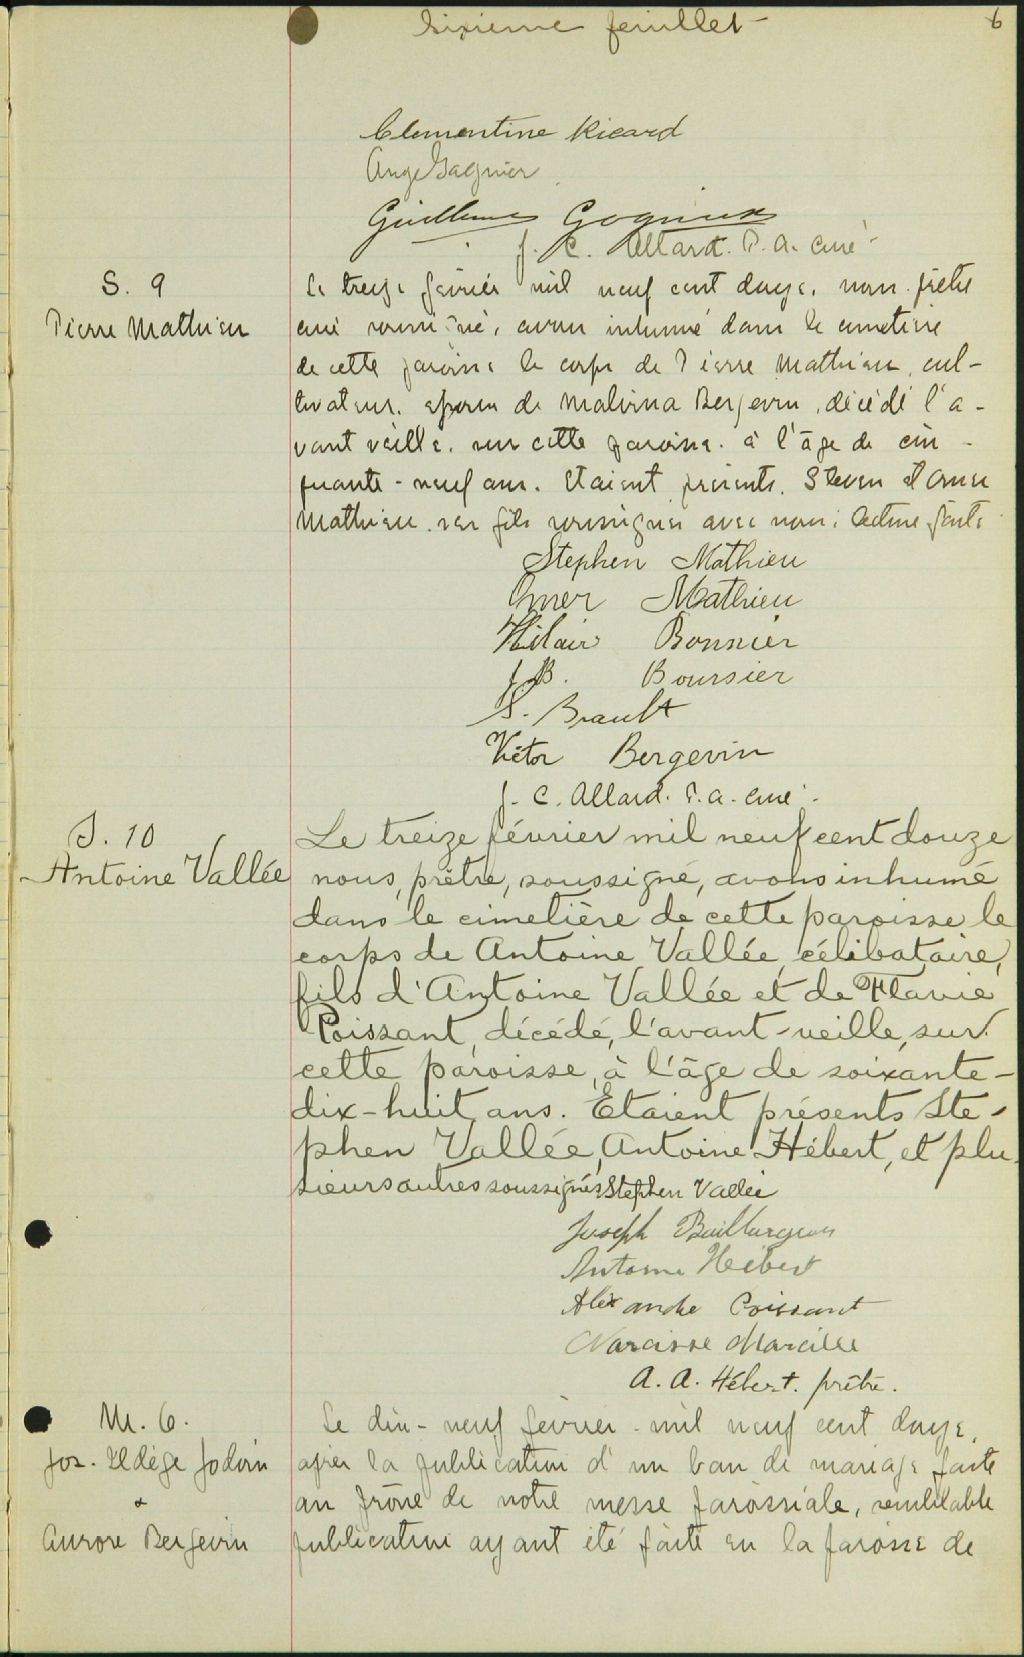 Sixième feuillet 6
Clementine Ricard
Ange Gagnier
J. C. Allard. P. A. curé
S. 9
Pierre Mathieu
Le treize février mil neuf cent douze, nous prêtre
curé soussigné, avons inhumé dans le cimetière
de cette paroisse le corps de Pierre Mathieu, cul-
tivateur, époux de Malvina Bergevin, décédé l'a-
vant veille, sur cette paroisse, à l'âge de cin-
quante-neuf ans. Etaient présents, Steven et Omer
Mathieu ses fils soussignés avec nous. Lecture faite
Stephen Mathieu
Omer Mathieu
Hilair
J. B. Boursier
S. Brault
Victor Bergevin
J. C. Allard. P. A. curé.
S. 10
Antoine Vallée
Le treize février mil neuf cent douze
nous, prêtre, soussigné, avons inhumé
dans le cimetière de cette paroisse le
corps de Antoine Vallée, célibataire,
fils d'Antoine Vallée et de Flavie
Poissant, décédé, l'avant-veille, sur
cette paroisse, à l'âge de soixante-
dix-huit ans. Etaient présents Ste-
phen Vallée, Antoine Hébert, et plu-
sieurs autres soussignés Stephen Vallée
Joseph Baillargeon
Antoine Hébert
Alexandre Poissant
Narcisse Marcille
A. A. Hébert. prêtre.
M. 6.
Jos. Ildège Jodoin
&
Aurore Bergevin
Le dix-neuf février mil neuf cent douze,
après la publication d'un ban de mariage faite
au prône de notre messe paroissiale, semblable
publication ayant été faite en la paroisse de